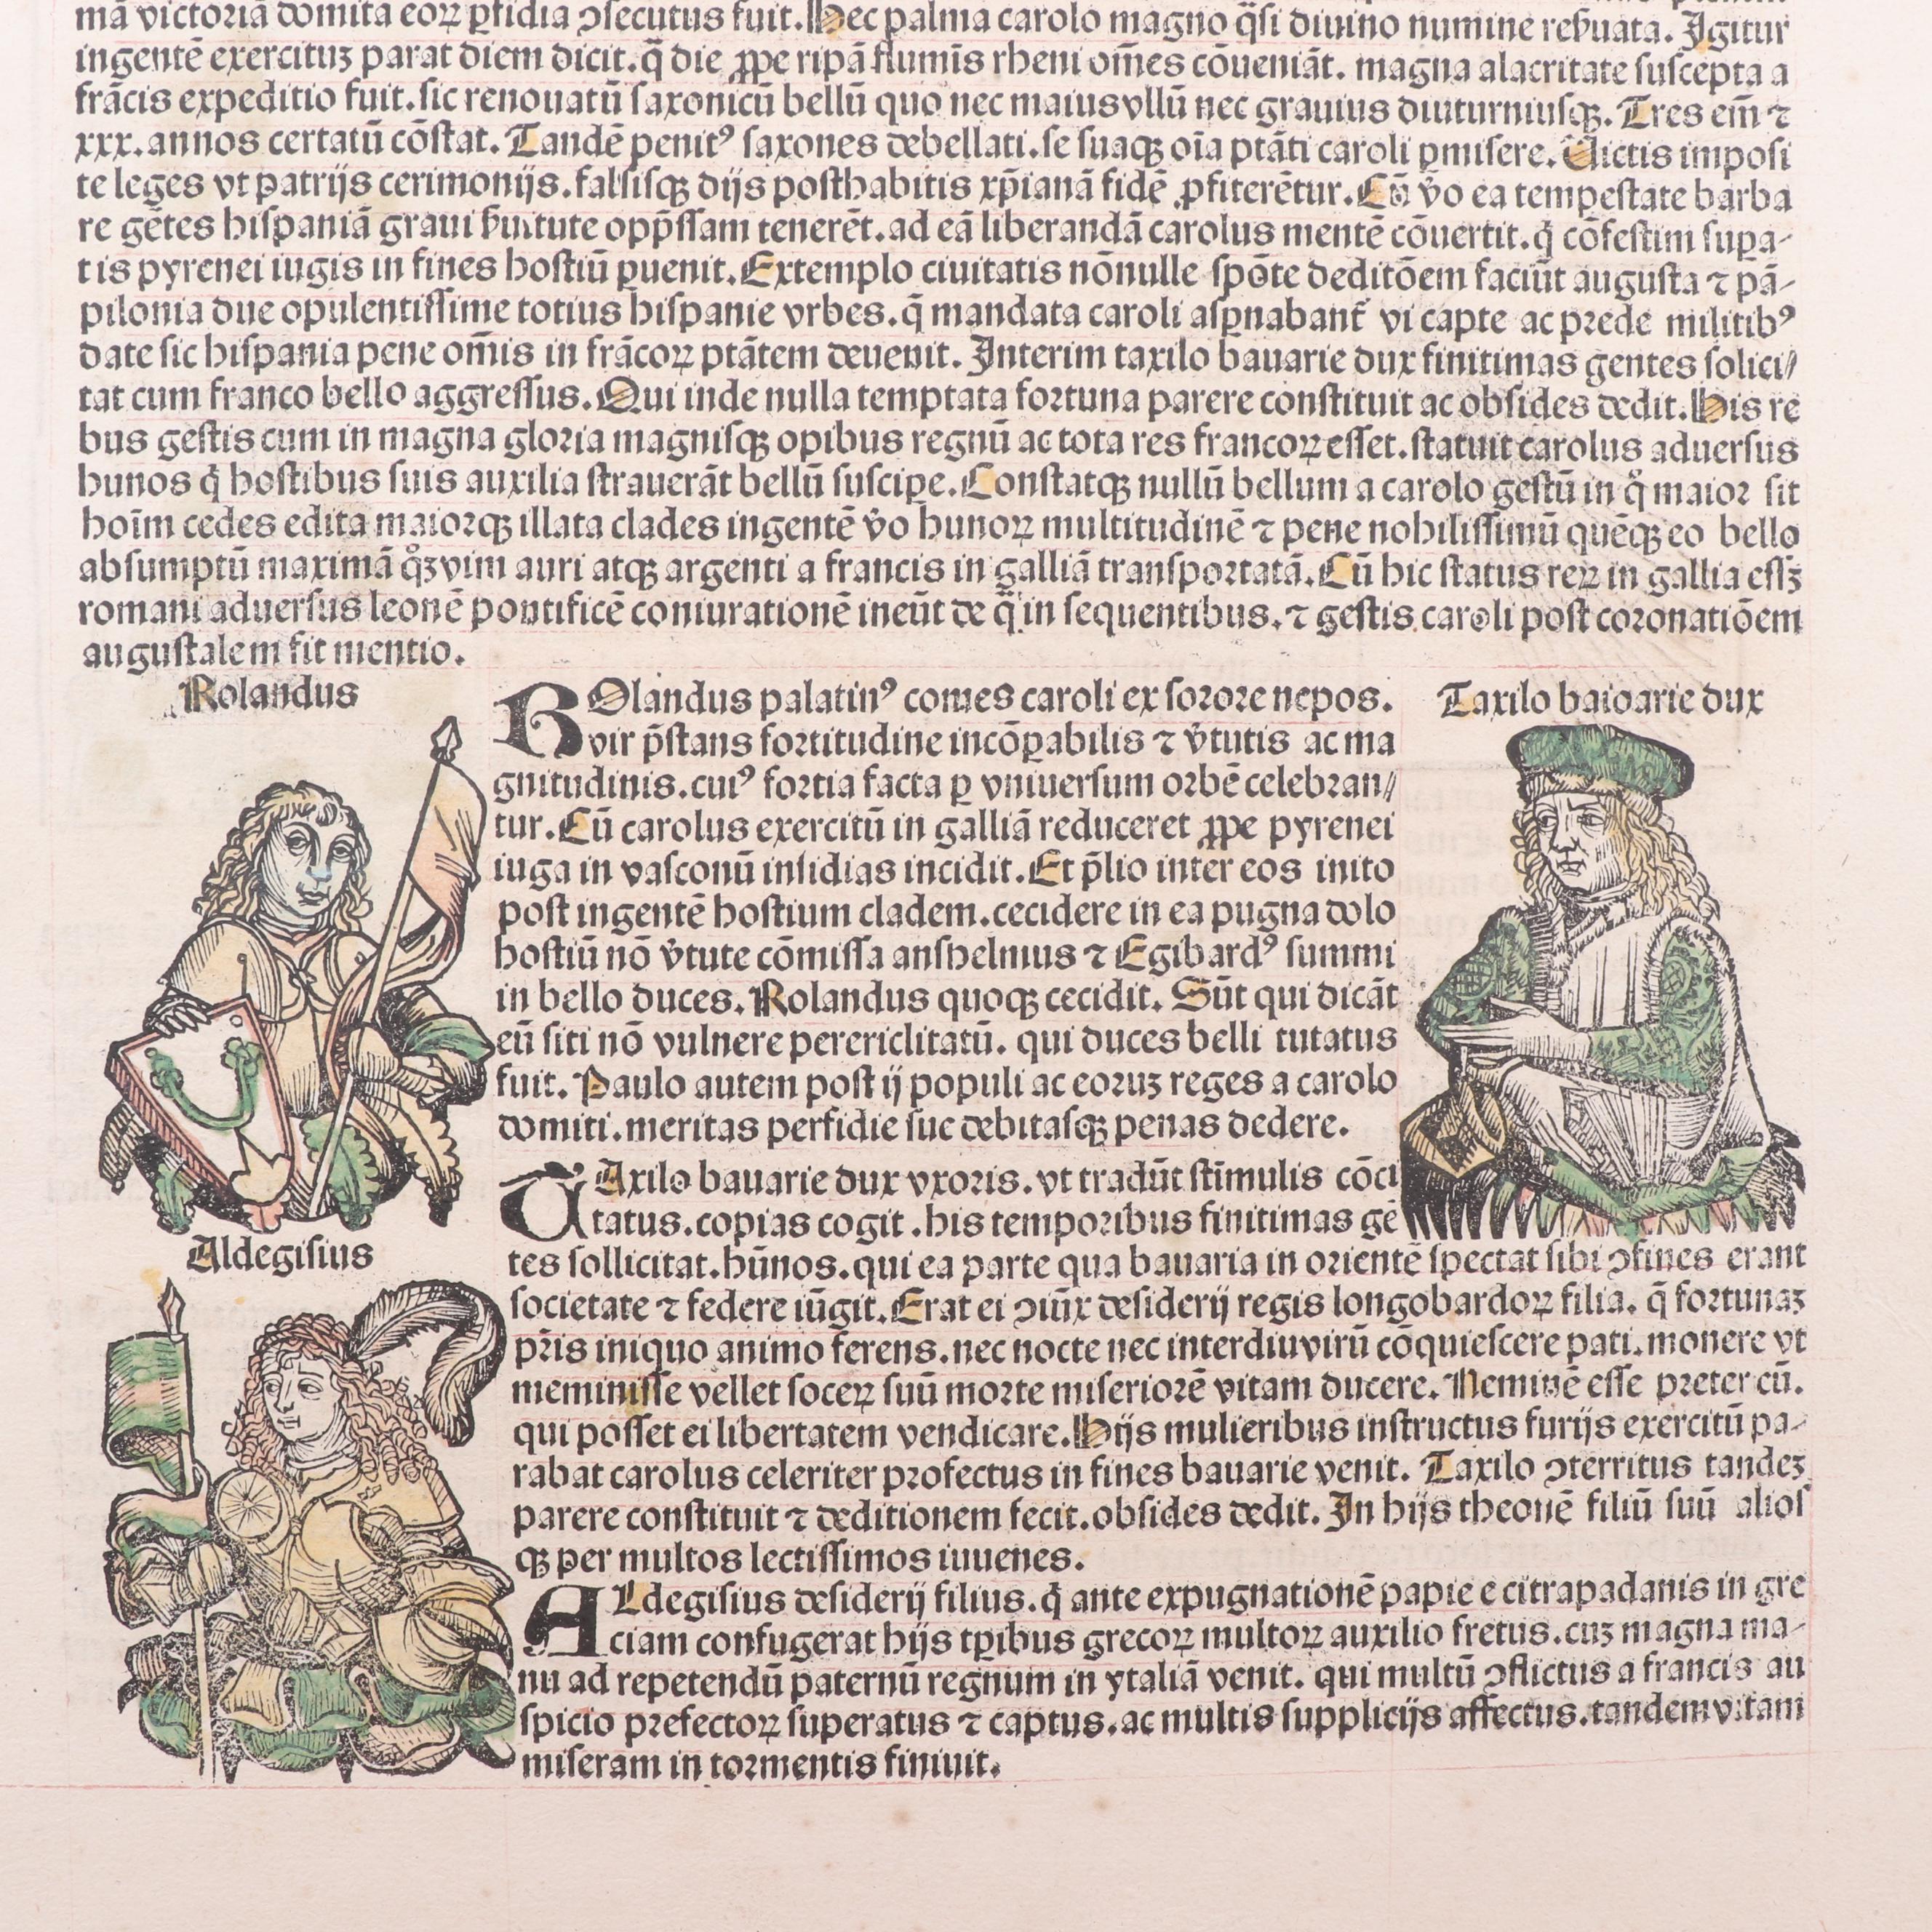 mā victoriā domita eoꝝ ꝑfidia ꝯsecutus fuit. Hec palma carolo magno q̄si diuino numine reẜuata. Igitur
ingentē exercituꝫ parat diem dicit. q̄ die ꝓpe ripā flumīs rheni om̄es cōueniāt. magna alacritate suscepta a
frācis expeditio fuit. sic renouatū saxonicū bellū quo nec maius vllū nec grauius diuturniusqꝫ. Tres em̄ ⁊
xxx. annos certatū cōstat. Tandē penitꝰ saxones debellati. se suaqꝫ oīa ptāti caroli ꝑmisere. Uictis imposi
te leges vt patrijs cerimonijs. falsisqꝫ dijs posthabitis xp̄ianā fidē ꝓfiterētur. Cū v̄o ea tempestate barba
re gētes hispaniā graui ẜuitute opp̄ssam tenerēt. ad eā liberandā carolus mentē cōuertit. q̇ cōfestim supa-
tis pyrenei iugis in fines hostiū ꝑuenit. Extemplo ciuitatis nōnulle spōte deditōem faciūt augusta ⁊ pā-
pilonia due opulentissime totius hispanie vrbes. q̄ mandata caroli aspnabant̄ vi capte ac prede militibꝰ
date sic hispania pene om̄is in frācoꝝ ptātem deuenit. Interim taxilo bauarie dux finitimas gentes solici//
tat cum franco bello aggressus. Qui inde nulla temptata fortuna parere constituit ac obsides dedit. His re
bus gestis cum in magna gloria magnisqꝫ opibus regnū ac tota res francoꝝ esset. statuit carolus aduersus
hunos q̇ hostibus suis auxilia strauerāt bellū suscipe. Constatqꝫ nullū bellum a carolo gestū in qͦ maior sit
hoīm cedes edita maiorqꝫ illata clades ingentē v̄o hunoꝝ multitudinē ⁊ pene nobilissimū quēqꝫ eo bello
absumptū maximā qͦꝫ vim auri atqꝫ argenti a francis in galliā transportatā. Cū hic status reꝝ in gallia essꝫ
romani aduersus leonē pontificē coniurationē ineūt de q̄ in sequentibus. ⁊ gestis caroli post coronatiōem
augustalem fit mentio.
Rolandus
ROlandus palatinꝰ comes caroli ex sorore nepos.
vir p̄stans fortitudine incōꝑabilis ⁊ v̄tutis ac ma
gnitudinis. cuiꝰ fortia facta ꝑ vniuersum orbē celebran//
tur. Cū carolus exercitū in galliā reduceret ꝓpe pyrenei
iuga in vasconū insidias incidit. Et p̄lio inter eos inito
post ingentē hostium cladem. cecidere in ea pugna dolo
hostiū nō v̄tute cōmissa anshelmus ⁊ Egibardꝰ summi
in bello duces. Rolandus quoqꝫ cecidit. Sūt qui dicāt
eū siti nō vulnere perericlitatū. qui duces belli tutatus
fuit. Paulo autem post ij populi ac eoruꝫ reges a carolo
domiti. meritas perfidie sue debitasqꝫ penas dedere.
Taxilo baioarie dux
TAxilo bauarie dux vxoris. vt tradūt stīmulis cōci
tatus. copias cogit. his temporibus finitimas gē
tes sollicitat. hūnos. qui ea parte qua bauaria in orientē spectat sibi ꝯfines erant
societate ⁊ federe iūgit. Erat ei ꝯiūx desiderij regis longobardoꝝ filia. q̄ fortunaꝫ
pr̄is iniquo animo ferens. nec nocte nec interdiu virū cōquiescere pati. monere vt
meminisse vellet soceꝝ suū morte miseriorē vitam ducere. Neminē esse preter eū.
qui posset ei libertatem vendicare. Hijs mulieribus instructus furijs exercitū pa-
rabat carolus celeriter profectus in fines bauarie venit. Taxilo ꝯterritus tandeꝫ
parere constituit ⁊ deditionem fecit. obsides dedit. In hijs theonē filiū suū alios
qꝫ per multos lectissimos iuuenes.
Aldegisius
ALdegisius desiderij filius. q̇ ante expugnationē papie e citrapadanis in gre
ciam confugerat hijs tꝑibus grecoꝝ multoꝝ auxilio fretus. cuꝫ magna ma-
nu ad repetendū paternū regnum in ytaliā venit. qui multū ꝯflictus a francis au
spicio prefectoꝝ superatus ⁊ captus. ac multis supplicijs affectus. tandem vitam
miseram in tormentis finiuit.